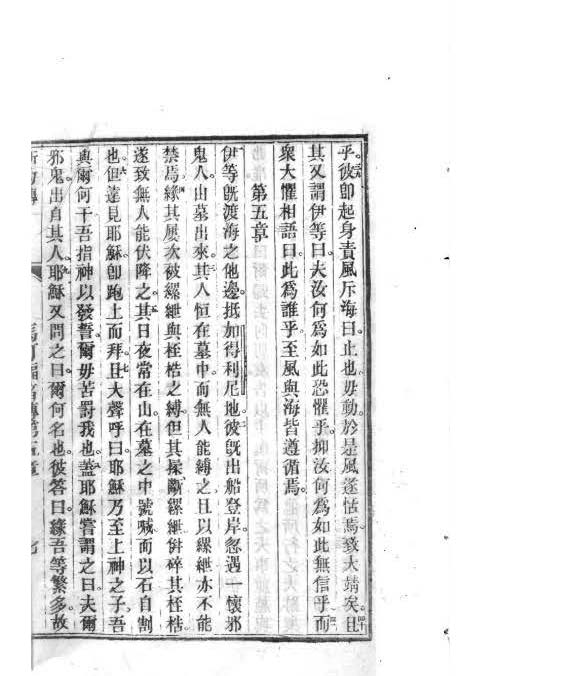 乎彼卽起身責風斥海曰止也毋動於是風遂怙焉致大靖矣且
其又謂伊等曰夫汝何爲如此恐懼乎抑汝何爲如此無信乎而
衆大懼相語曰此爲誰乎至風與海皆遵循焉
第五章
伊等旣渡海之他邊抵加得利尼地彼旣出船登岸忽遇一懷邪
鬼人由墓出來其人恒在墓中而無人能縛之且以縲紲亦不能
禁焉緣其屢次被縲紲與桎梏之縛但其採斷縲紲併碎其桎梏
遂致無人能伏降之其日夜常在山在墓之中號喊而以石自割
也但遠見耶穌卽跑上而拜且大聲呼曰耶穌乃至上神之子吾
與爾何干吾指神以發誓爾毋苦罰我也蓋耶穌嘗謂之曰夫爾
邪鬼出自其人耶穌又問之曰爾何名也彼答曰緣吾等繁多故